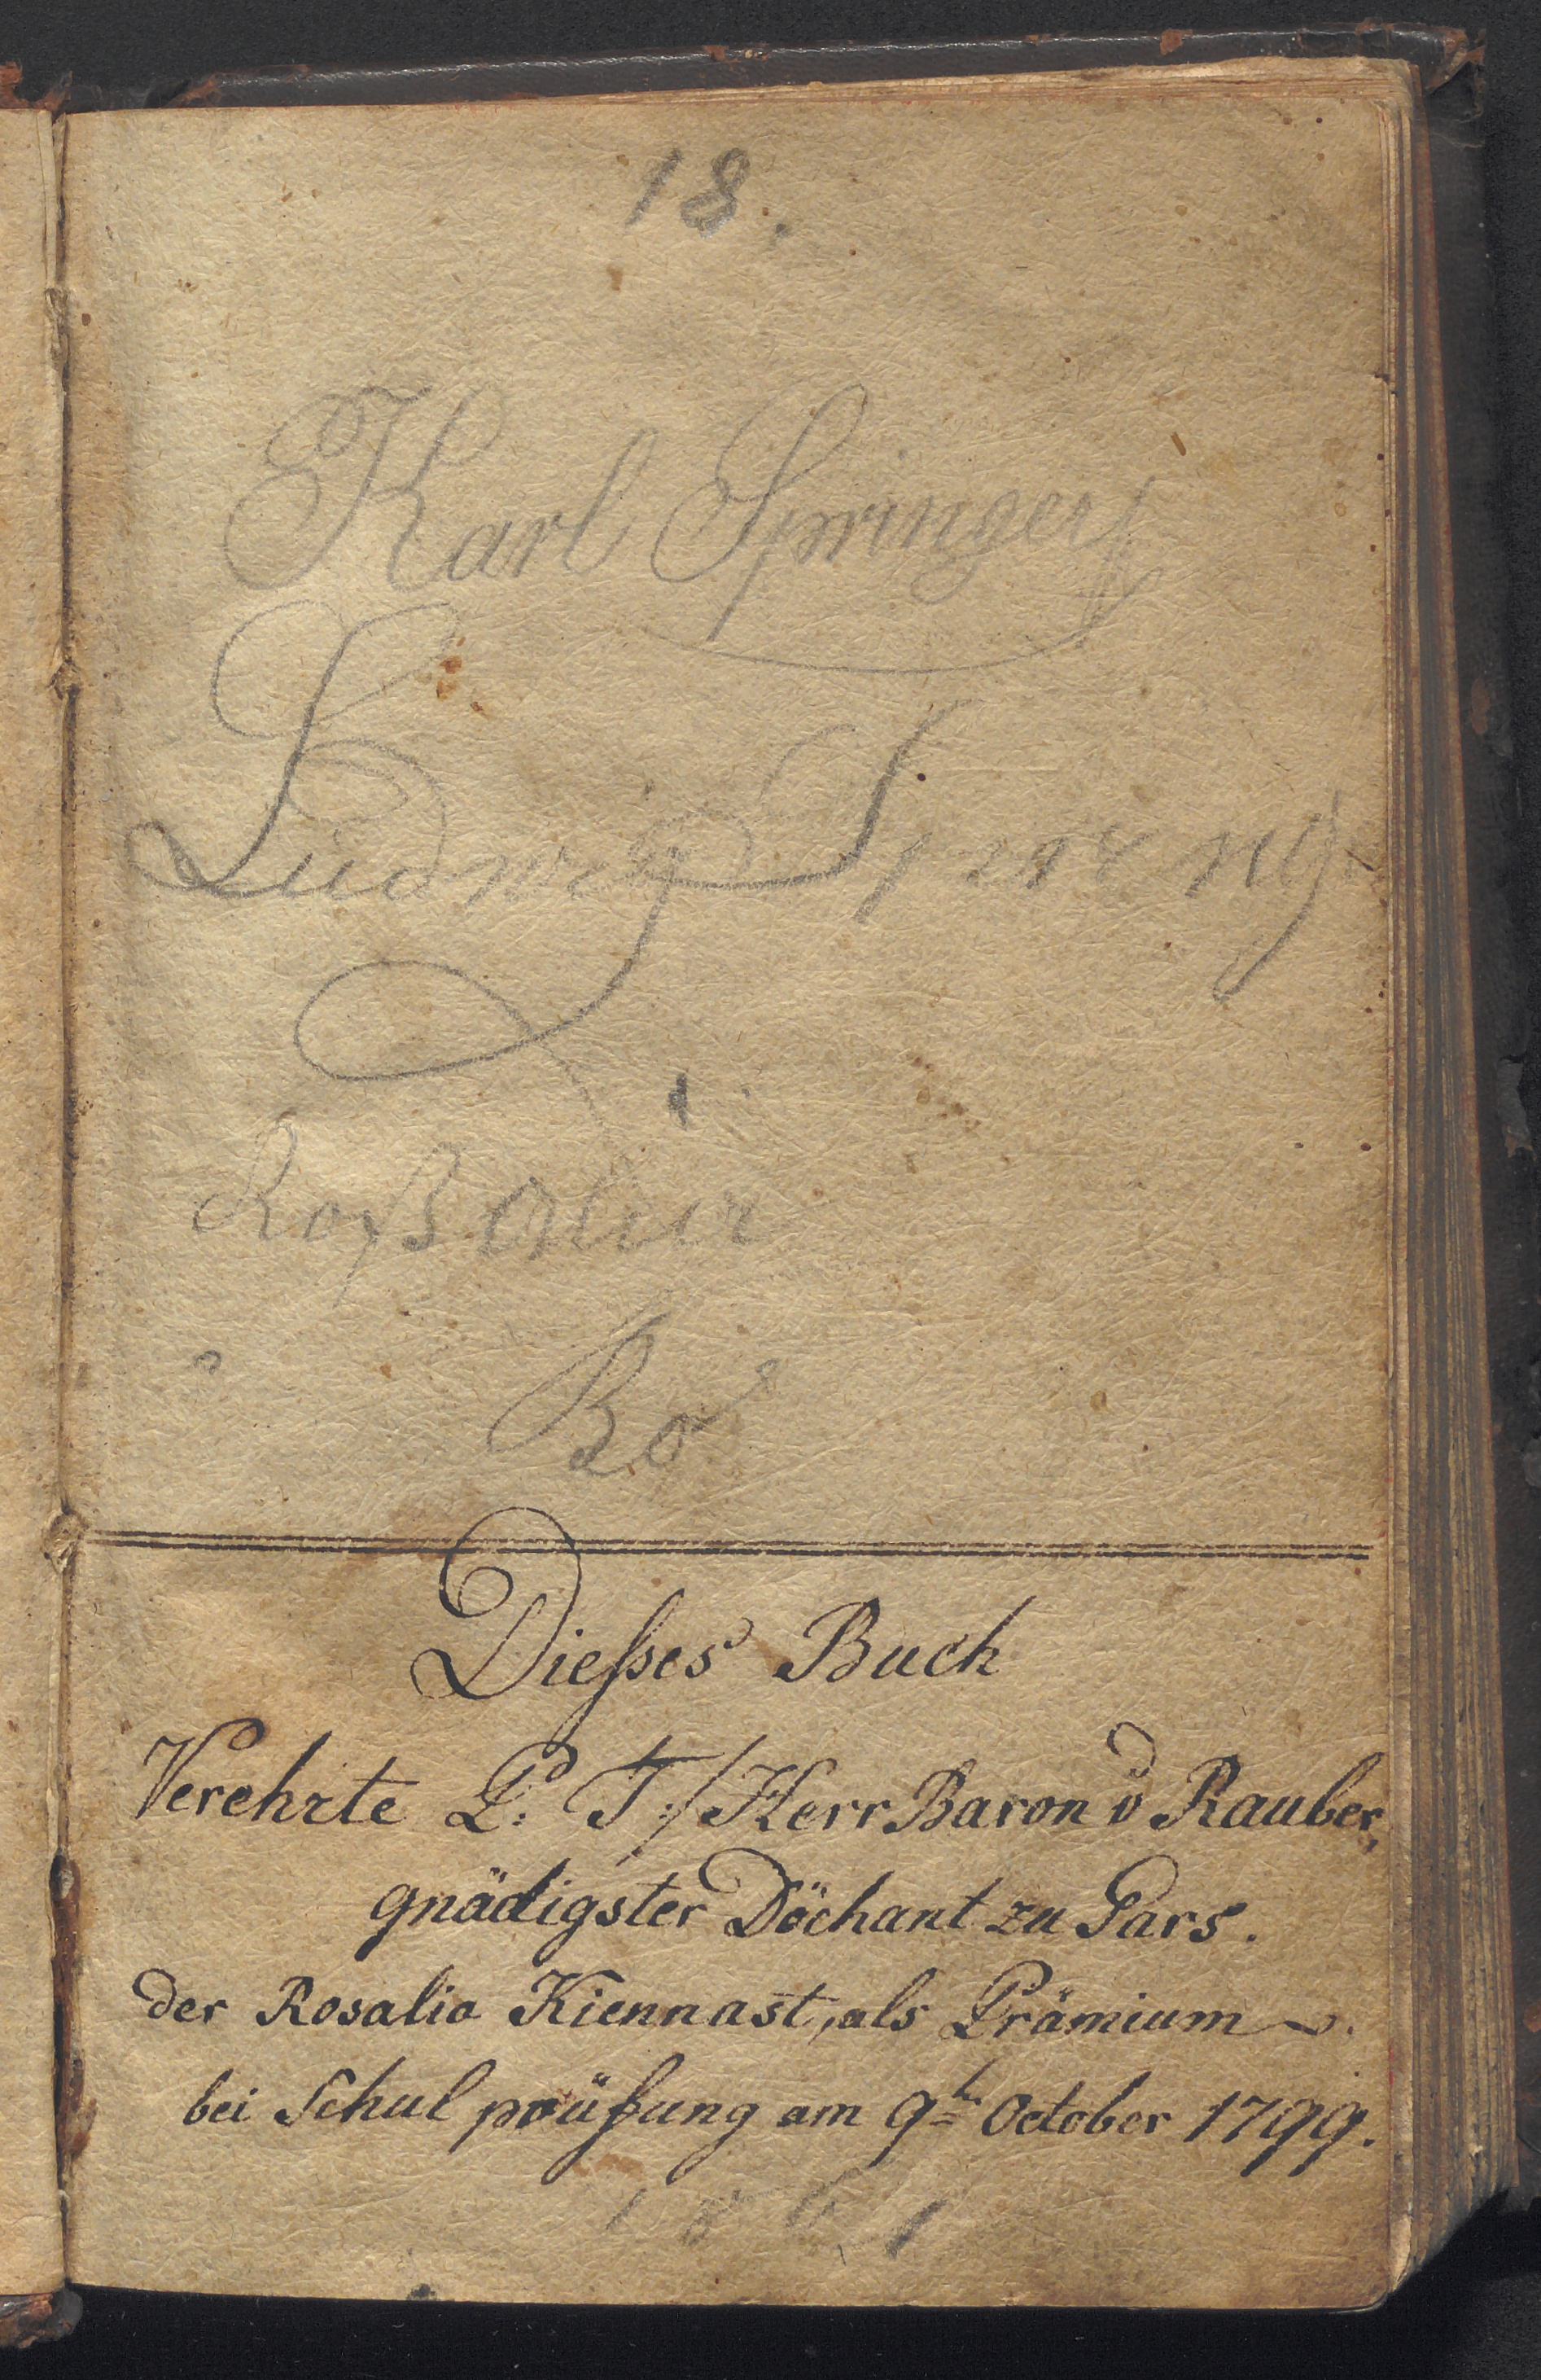 18.
Karl Springer
Ludwig
Ro
Dießes Buch
Verehrte P: T:/ Herr Baron v Rauber,
gnädigster Döchant zu Gars.
der Rosalia Kiennast, als Prämium
bei Schul prüfung am 9t October 1799.
1861